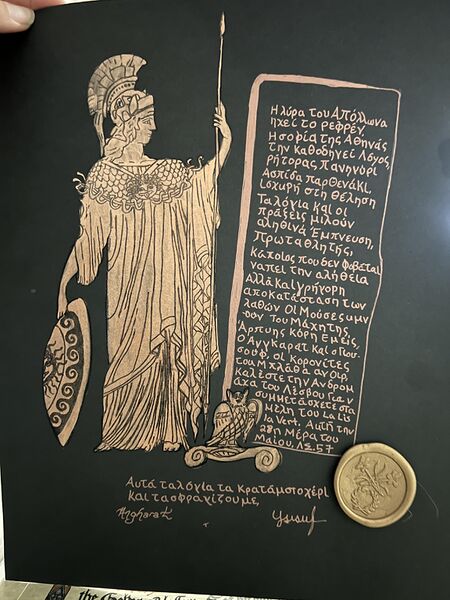 Η λύρα του Απόλλωνα
ηχεί το ρεφρέν
Η σοφία της Αθηνάς
την καθοδηγεί Λόγος
ρήτορας πανηγύρι
Ασπίδα παρθενάκι,
ισχυρή στη θέληση
Τα λόγια και οι
πράξεις μιλούν
αληθινά Έμπνευση,
πρωταθλητής,
κάποιος που δεν φοβάται
να πει την αλήθεια
Αλλά και γρήγορη
αποκατάσταση των
λαθών Οι Μούσες υμν
Του Μάχητης
κόρη Εμείς,
Ο Ανγκαράτ και ο Γιου-
σούφ, οι κορονίτες
του
καλέστε την Ανδρομ
άχα του Λέσβου Για ν
συμμετάσχετε στα
μέλη του La lis
la Vert. Αυτή την
28η Μέρα του
Μαΐου, Α.Σ. 57
Αυτά τα λόγια τα κρατάμε στο χέρι
και τα σφραγίζουμε,
Angharat
Yusuf
the